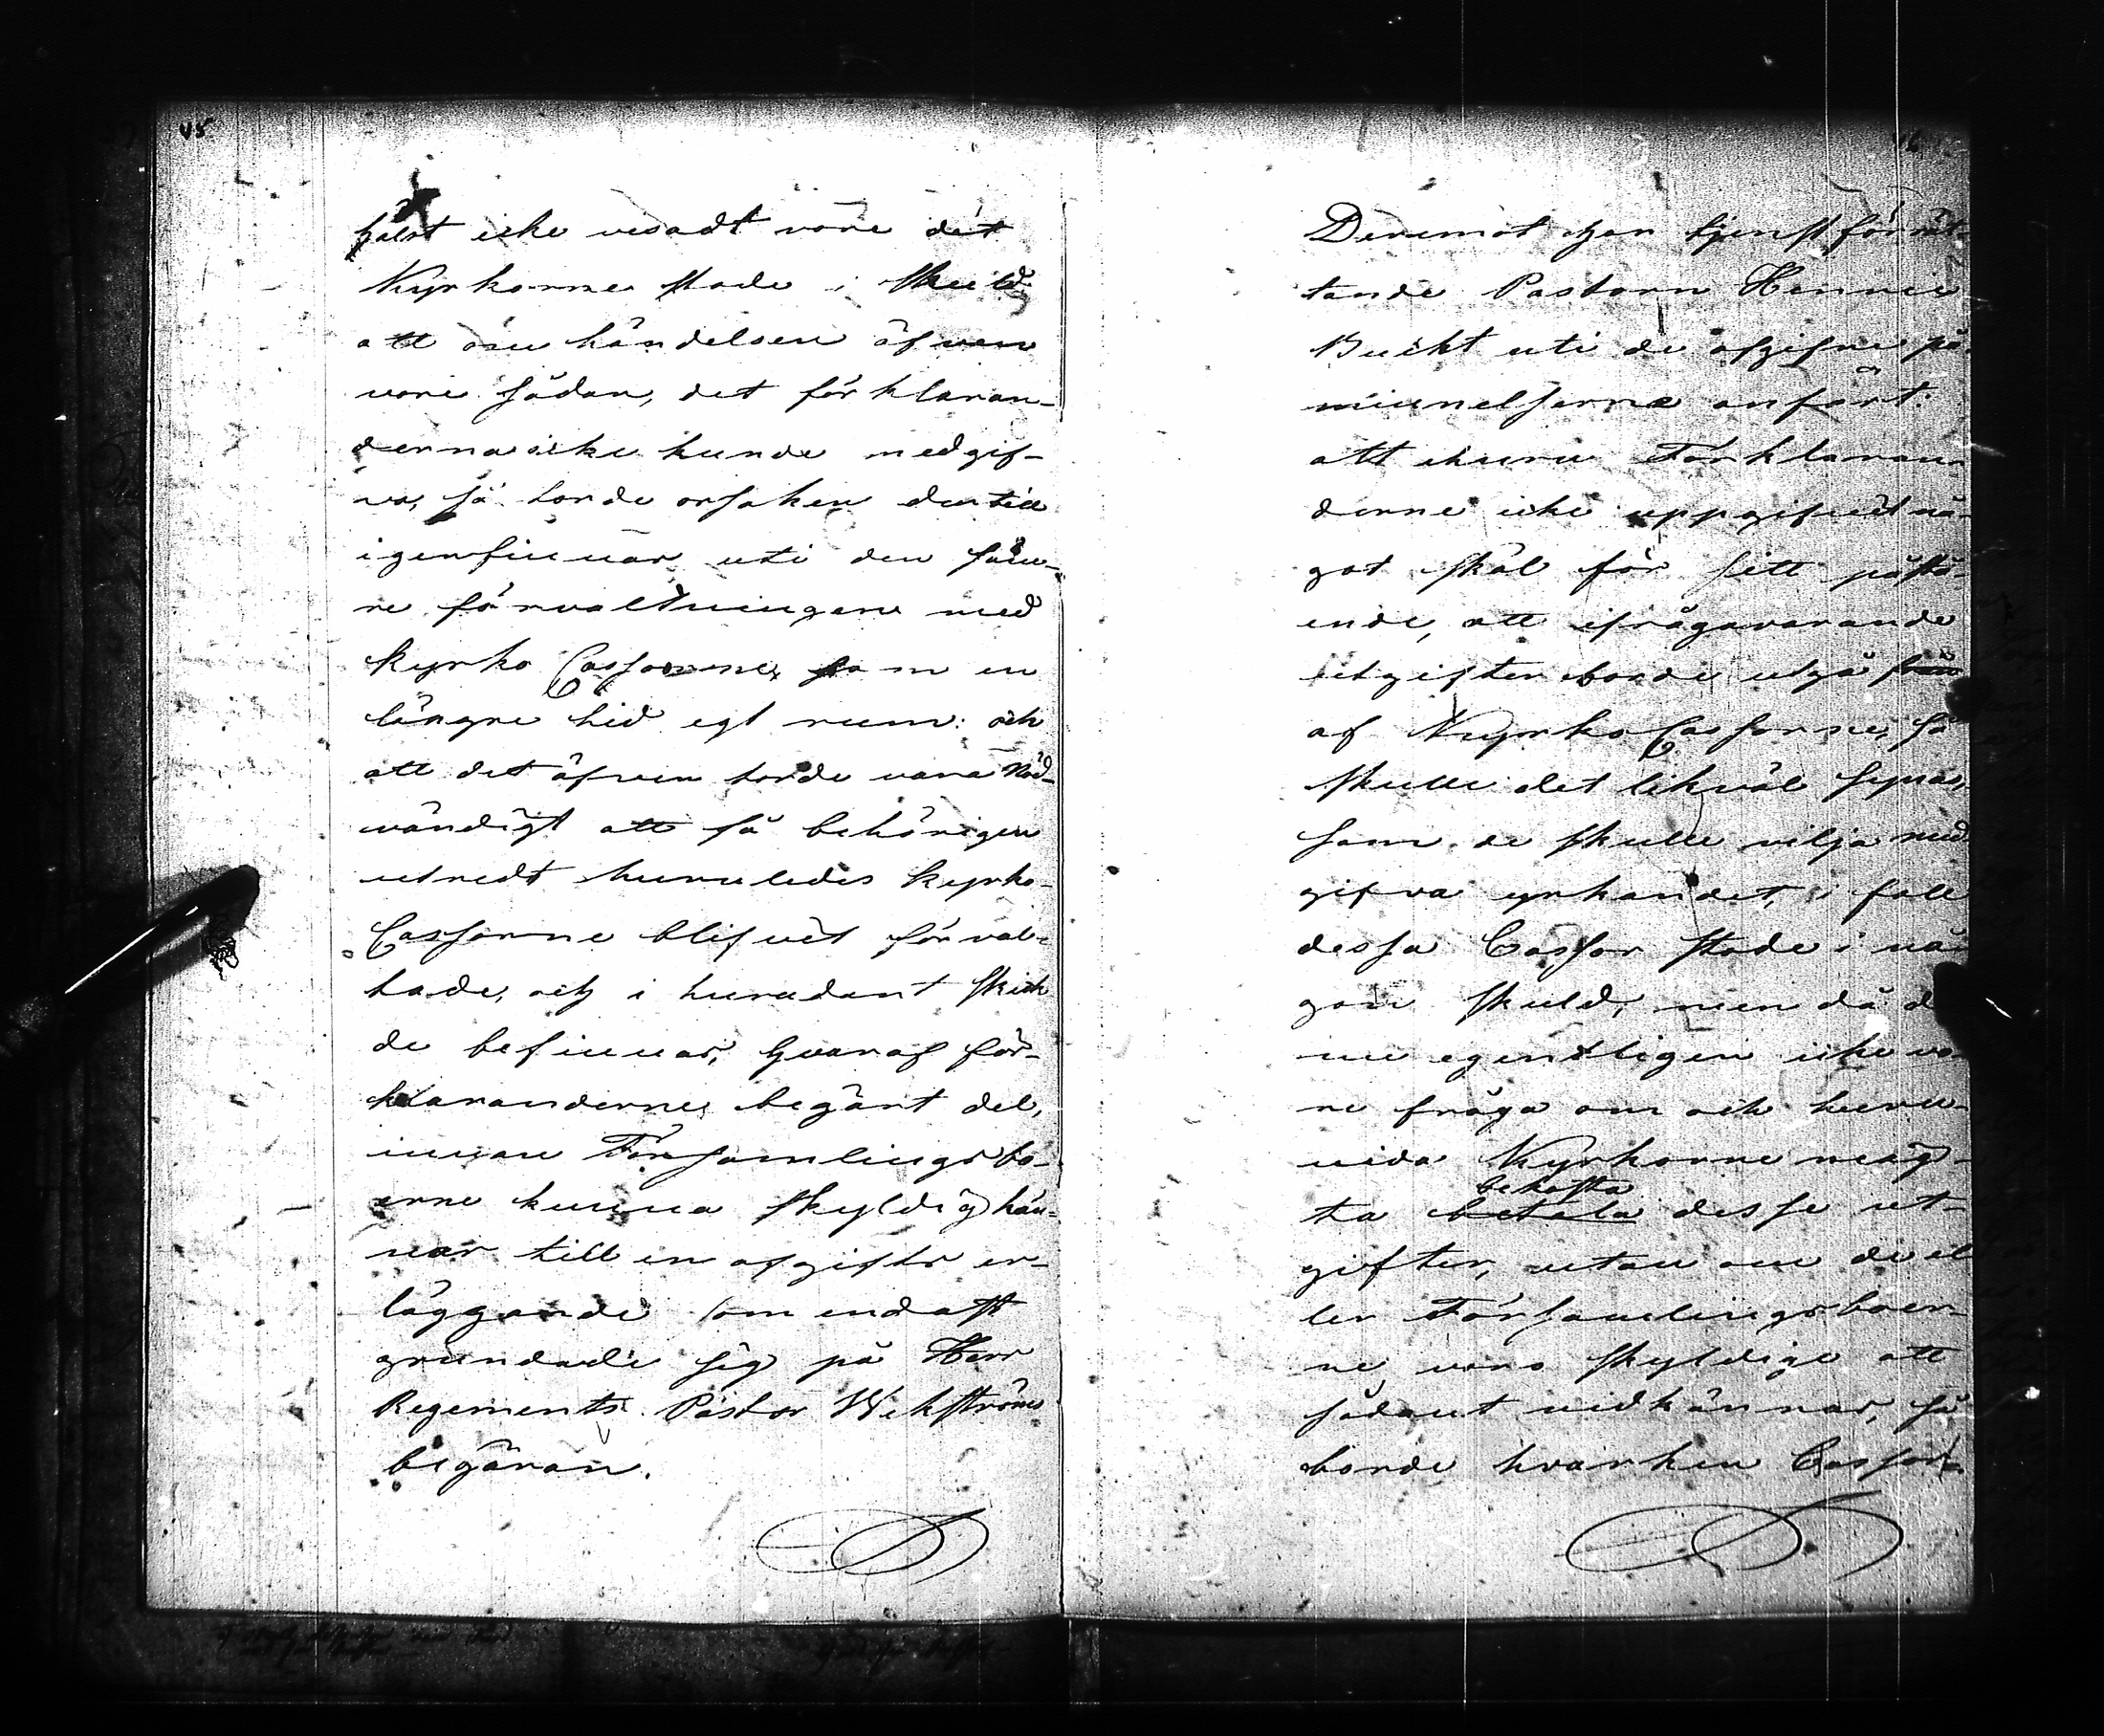 45
hälst icke visadt vore det
Kyrkorne stode i skuld
att om händelsen äfven
vore sådan, det förklaran-
derna icke kunde medgif-
va, så torde orsaken dertill
igenfinnas uti den säm-
re förvaltningen med
Kyrko Cassorne, som en
längre tid egt rum: och
att det äfven torde vara nöd-
vändigt att få behörigen
utredt huruledes kyrko-
Cassorne blifvit förval-
tade, och i hurudant skick
de befinnas, hvaraf för-
klaranderne begärt del,
innan Församlingsbo-
erne kunna skyldig kän-
nas till en afgifts er-
läggande som endast
grundade sig på Herr
Regements Pastor Wekströms
begäran.
46
Deremot har tjenstförrät-
tande Pastorn Henric
Bucht uti de afgifne på-
minnelserna anfört:
att ehuru Förklaran-
derne icke uppgifvit nå-
got skäl för sitt påstå-
ende, att ifrågavarande
utgifter borde utgå från
af Kyrko Cassorne, så
skulle det likväl synas,
som de skulle vilja med-
gifva yrkandet, i fall
dessa Cassor stode i nå-
gon skuld, men då de
nu egentligen icke vo-
re fråga om och huru-
vida Kyrkorne mäg-
bekosta
ta betala desse ut-
gifter, utan om de el-
ler Församlingsboer-
ne voro skyldige att
sådant vidkännas, så
borde hvarken Cassor